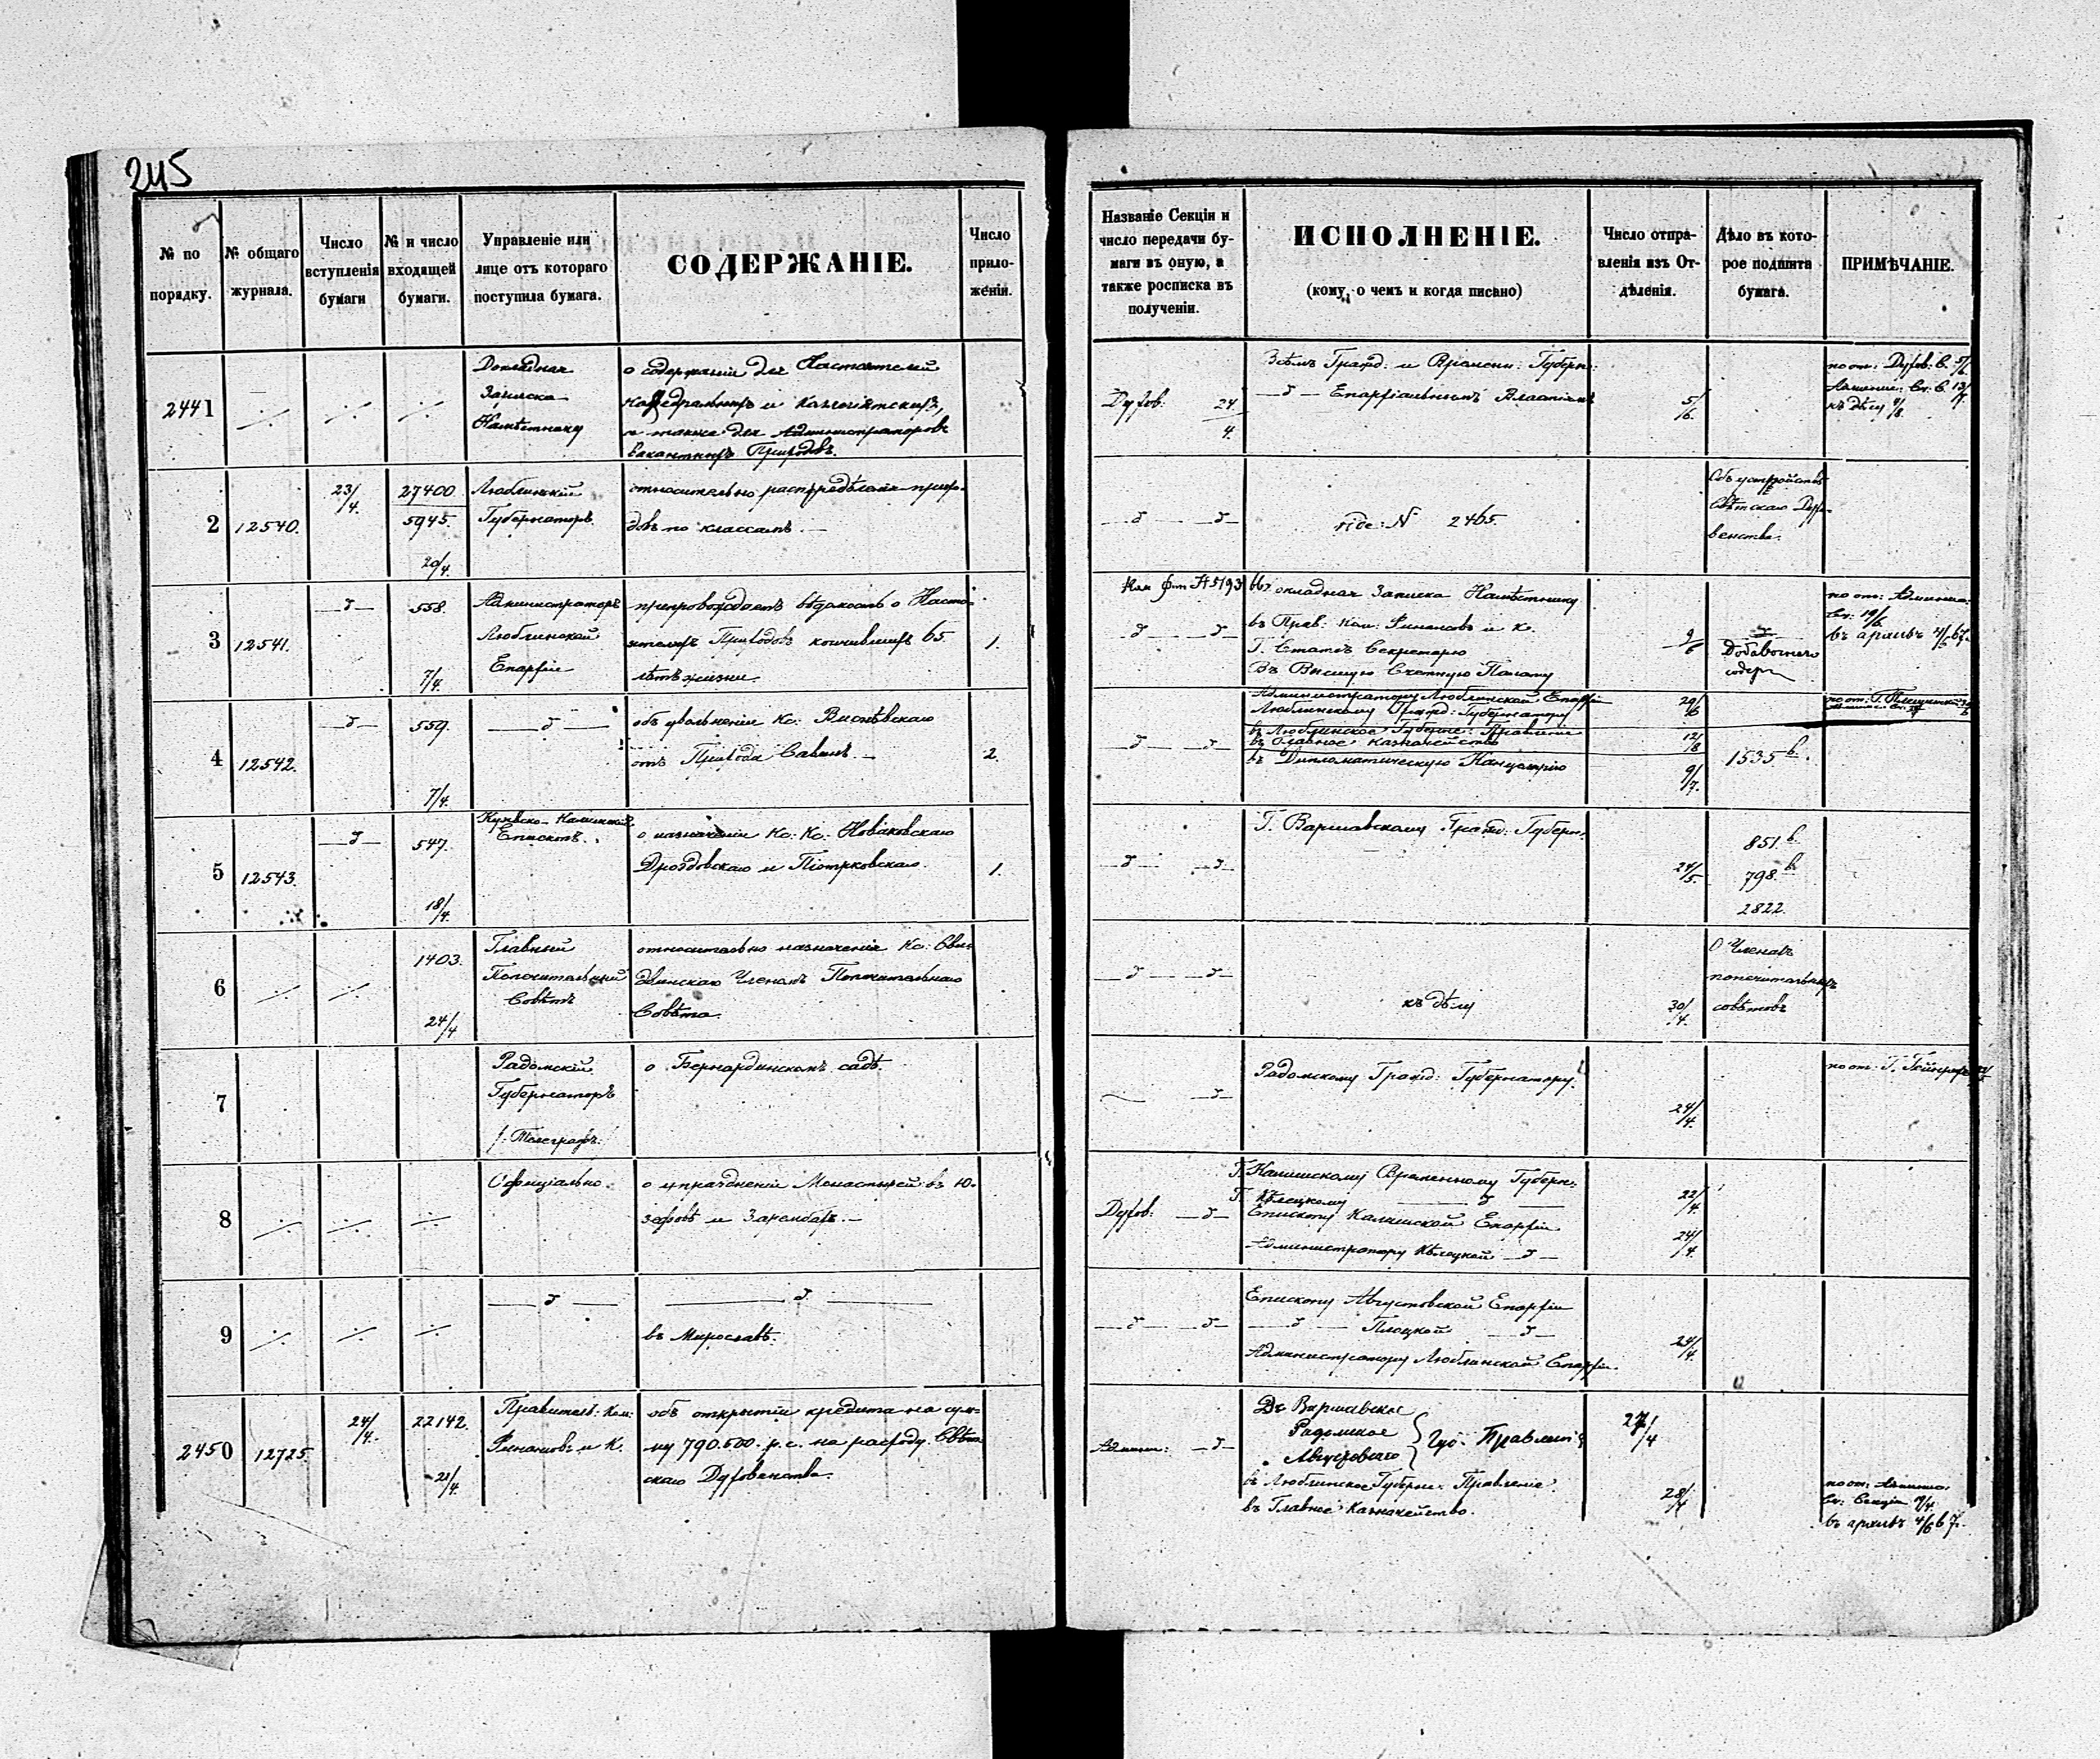 245
№ по порядку.
№ общаго журнала.
Число вступленія бумаги
№ и число входящей бумаги.
Управленіе или лице отъ котораго поступила бумага.
СОДЕРЖАНІЕ.
Число приложеній.
Названіе Секціи и число передачи бумаги въ оную, а также росписка въ полученіи.
ИСПОЛНЕНІЕ.
(кому, о чемъ и когда писано)
Число отправленія изъ Отдѣленія.
Дѣло въ которое подшита бумага.
ПРИМѢЧАНІЕ.
2441
Докладная
Записка
Намѣстнику
о содержаніи для Настоятелей
Кафедральныхъ и Коллегіятскихъ,
а также для Администраторовъ
вакантныхъ Приходовъ.
Духов: 24/4.
Всѣмъ Гражд. и Времени: Губерн:
—д— Епархіальнымъ Властямъ
5/6.
по от: Духов: С. 5/6
къ дѣлу 4/8.
2
12540.
23/4.
27400
5945.
20/4.
Люблинскій
Губернаторъ
относительно распредѣленія прихо-
довъ по классамъ. —
—д— —д—
vide: № 2465.
Объ устройствѣ
Свѣтскаго Духо-
венства.
3
12541.
—д—
558.
7/4.
Администраторъ
Люблинской
Епархіи
препровождаетъ вѣдомость о Насто-
ятеляхъ Приходовъ кончившихъ 65
лѣтъ жизни.
1.
—д— —д—
докладная Записка Намѣстнику
въ Прав: Ком: Финансовъ и К.
Г. Статсъ Секретарю
Въ Высшую Счетную Палату
9/6
Добавочное
содер
въ архивъ 4/6 67.
4
12542.
—д—
559.
7/4.
—д—
объ увольненіи Кс:
отъ Прихода Савинъ. —
2.
—д— —д—
Администратору Люблинской Епархіи
Люблинскому Гражд: Губернатору
въ Люблинское Губерн: Правленіе
въ Главное Казначейство
въ Дипломатическую Канцелярію
29/6
12/8
9/7.
1535 в.
5
12543.
—д—
547.
18/4.
Куявско-Калишскій
Епископъ.
о назначеніи Кс: Кс: Новаковскаго
Дроздовскаго и Піотрковскаго.
1.
—д— —д—
Г. Варшавскому Гражд: Губерн:
24/5.
851 в.
798 в.
2822.
6
1403.
24/4
Главный
Попечительный
Совѣтъ
относительно назначенія Кс: Сви-
динскаго Членомъ Попечительнаго
Совѣта.
—д— —д—
къ дѣлу
30/4.
О Членахъ
попечительныхъ
совѣтовъ
7
Радомскій
Губернаторъ
/: Телеграфъ:
о Бернардинскомъ садѣ.
—д—
Радомскому Гражд: Губернатору.
24/4.
8
Офиціально.
о упраздненіи Монастырей въ Ю-
зефовѣ и Зарембахъ. —
Духов: —д—
Г. Калишскому Временному Губерн:
Г. Кѣлецкому —д—
Епископу Калишской Епархіи
Администратору Кѣлецкой —д—
22/4.
24/4.
9
—д—
—д—
въ Мирославѣ.
—д— —д—
Епископу Августовской Епархіи
—д— Плоцкой —д—
Администратору Люблинской Епархіи.
24/4.
2450
12725.
24/4.
22142.
21/4.
Правител: Ком:
Финансовъ и К.
объ открытіи кредита на сум-
му 790.500. р. с. на расходу Свѣт-
скаго Духовенства.
Админ: —д—
Въ Варшавское
Радомское
Августовское
Губ. Правленія
въ Люблинское Губерн: Правленіе
въ Главное Казначейство.
27/4
28/4
въ архивъ 4/6 67.